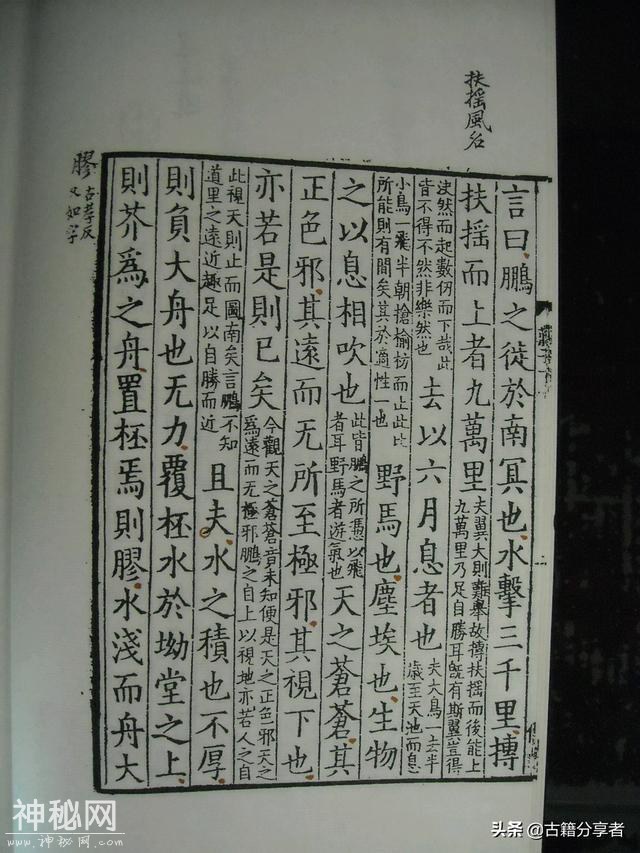 扶搖風名
言曰鵬之徙於南冥也水擊三千里摶
扶搖而上者九萬里
夫翼大則難舉故摶扶搖而後能上
九萬里乃足自勝耳既有斯翼豈得
決然而起數仞而下哉此
皆不得不然非樂然也
去以六月息者也
夫大鳥一去半
歲至天池而息
小鳥一飛半朝搶榆枋而止此比
所能則有間矣其於適性一也
野馬也塵埃也生物
之以息相吹也
此皆鵬之所憑以飛
者耳野馬者遊氣也
天之蒼蒼其
正色邪其遠而无所至極邪其視下也
亦若是則已矣
今觀天之蒼蒼音未知便是天之正色邪天之
爲遠而无極邪鵬之自上以視地亦若人之自
此視天則止而圖南矣言鵬不知
道里之遠近趣足以自勝而近
且夫水之積也不厚
則負大舟也无力覆杯水於坳堂之上
則芥爲之舟置杯焉則膠水淺而舟大
膠
古孝反
又如字
神秘网
www.神秘网.com
头条@古籍分享者